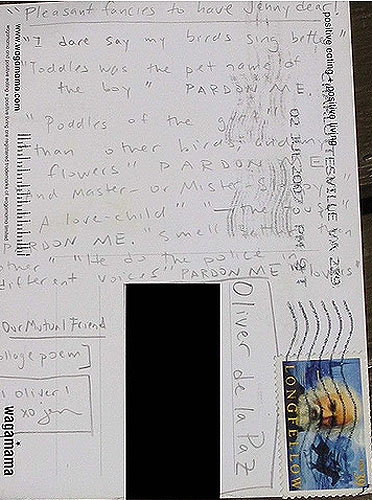 "Pleasant fancies to have Jenny dear!
"I dare say my birds sing better
"Toddles was the pet name of
the boy" PARDON ME.
"Poddles of the
than other birds;
flowers" PARDON
and Master- or Mister-
A love-child" "- the
PARDON ME. "smell better than
other" "He do the police in
different voices" PARDON ME "
Our Mutual Friend
collage poem]
Hi Oliver!
xo Jen
Oliver de la Paz
www.wagamama.com
wagamama and positive eating + positive living are registered trademarks of wagamama limited
wagamama
positive eating + positive living
CHARLOTTESVILLE VA 229
02 JUL 2007 PM 9 T
LONGFELLOW
USA 39